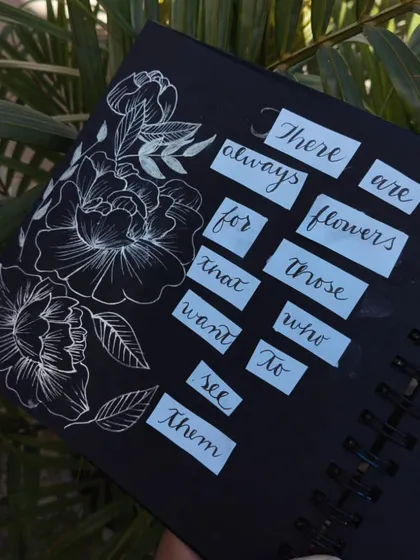 There are
always flowers
for those
that who
want to
see
them